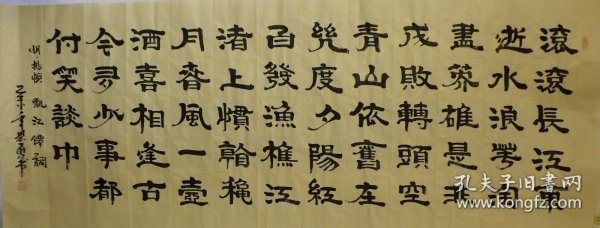 滚滚長江東
逝水浪花淘
盡英雄是非
成敗轉頭空
青山依舊在
幾度夕陽紅
白發漁樵江
渚上慣看穐
月春風一壺
酒喜相逢古
今多少事都
付笑談中
明楊慎 江 詞
乙未年
孔夫子旧书网
www.kongfz.com